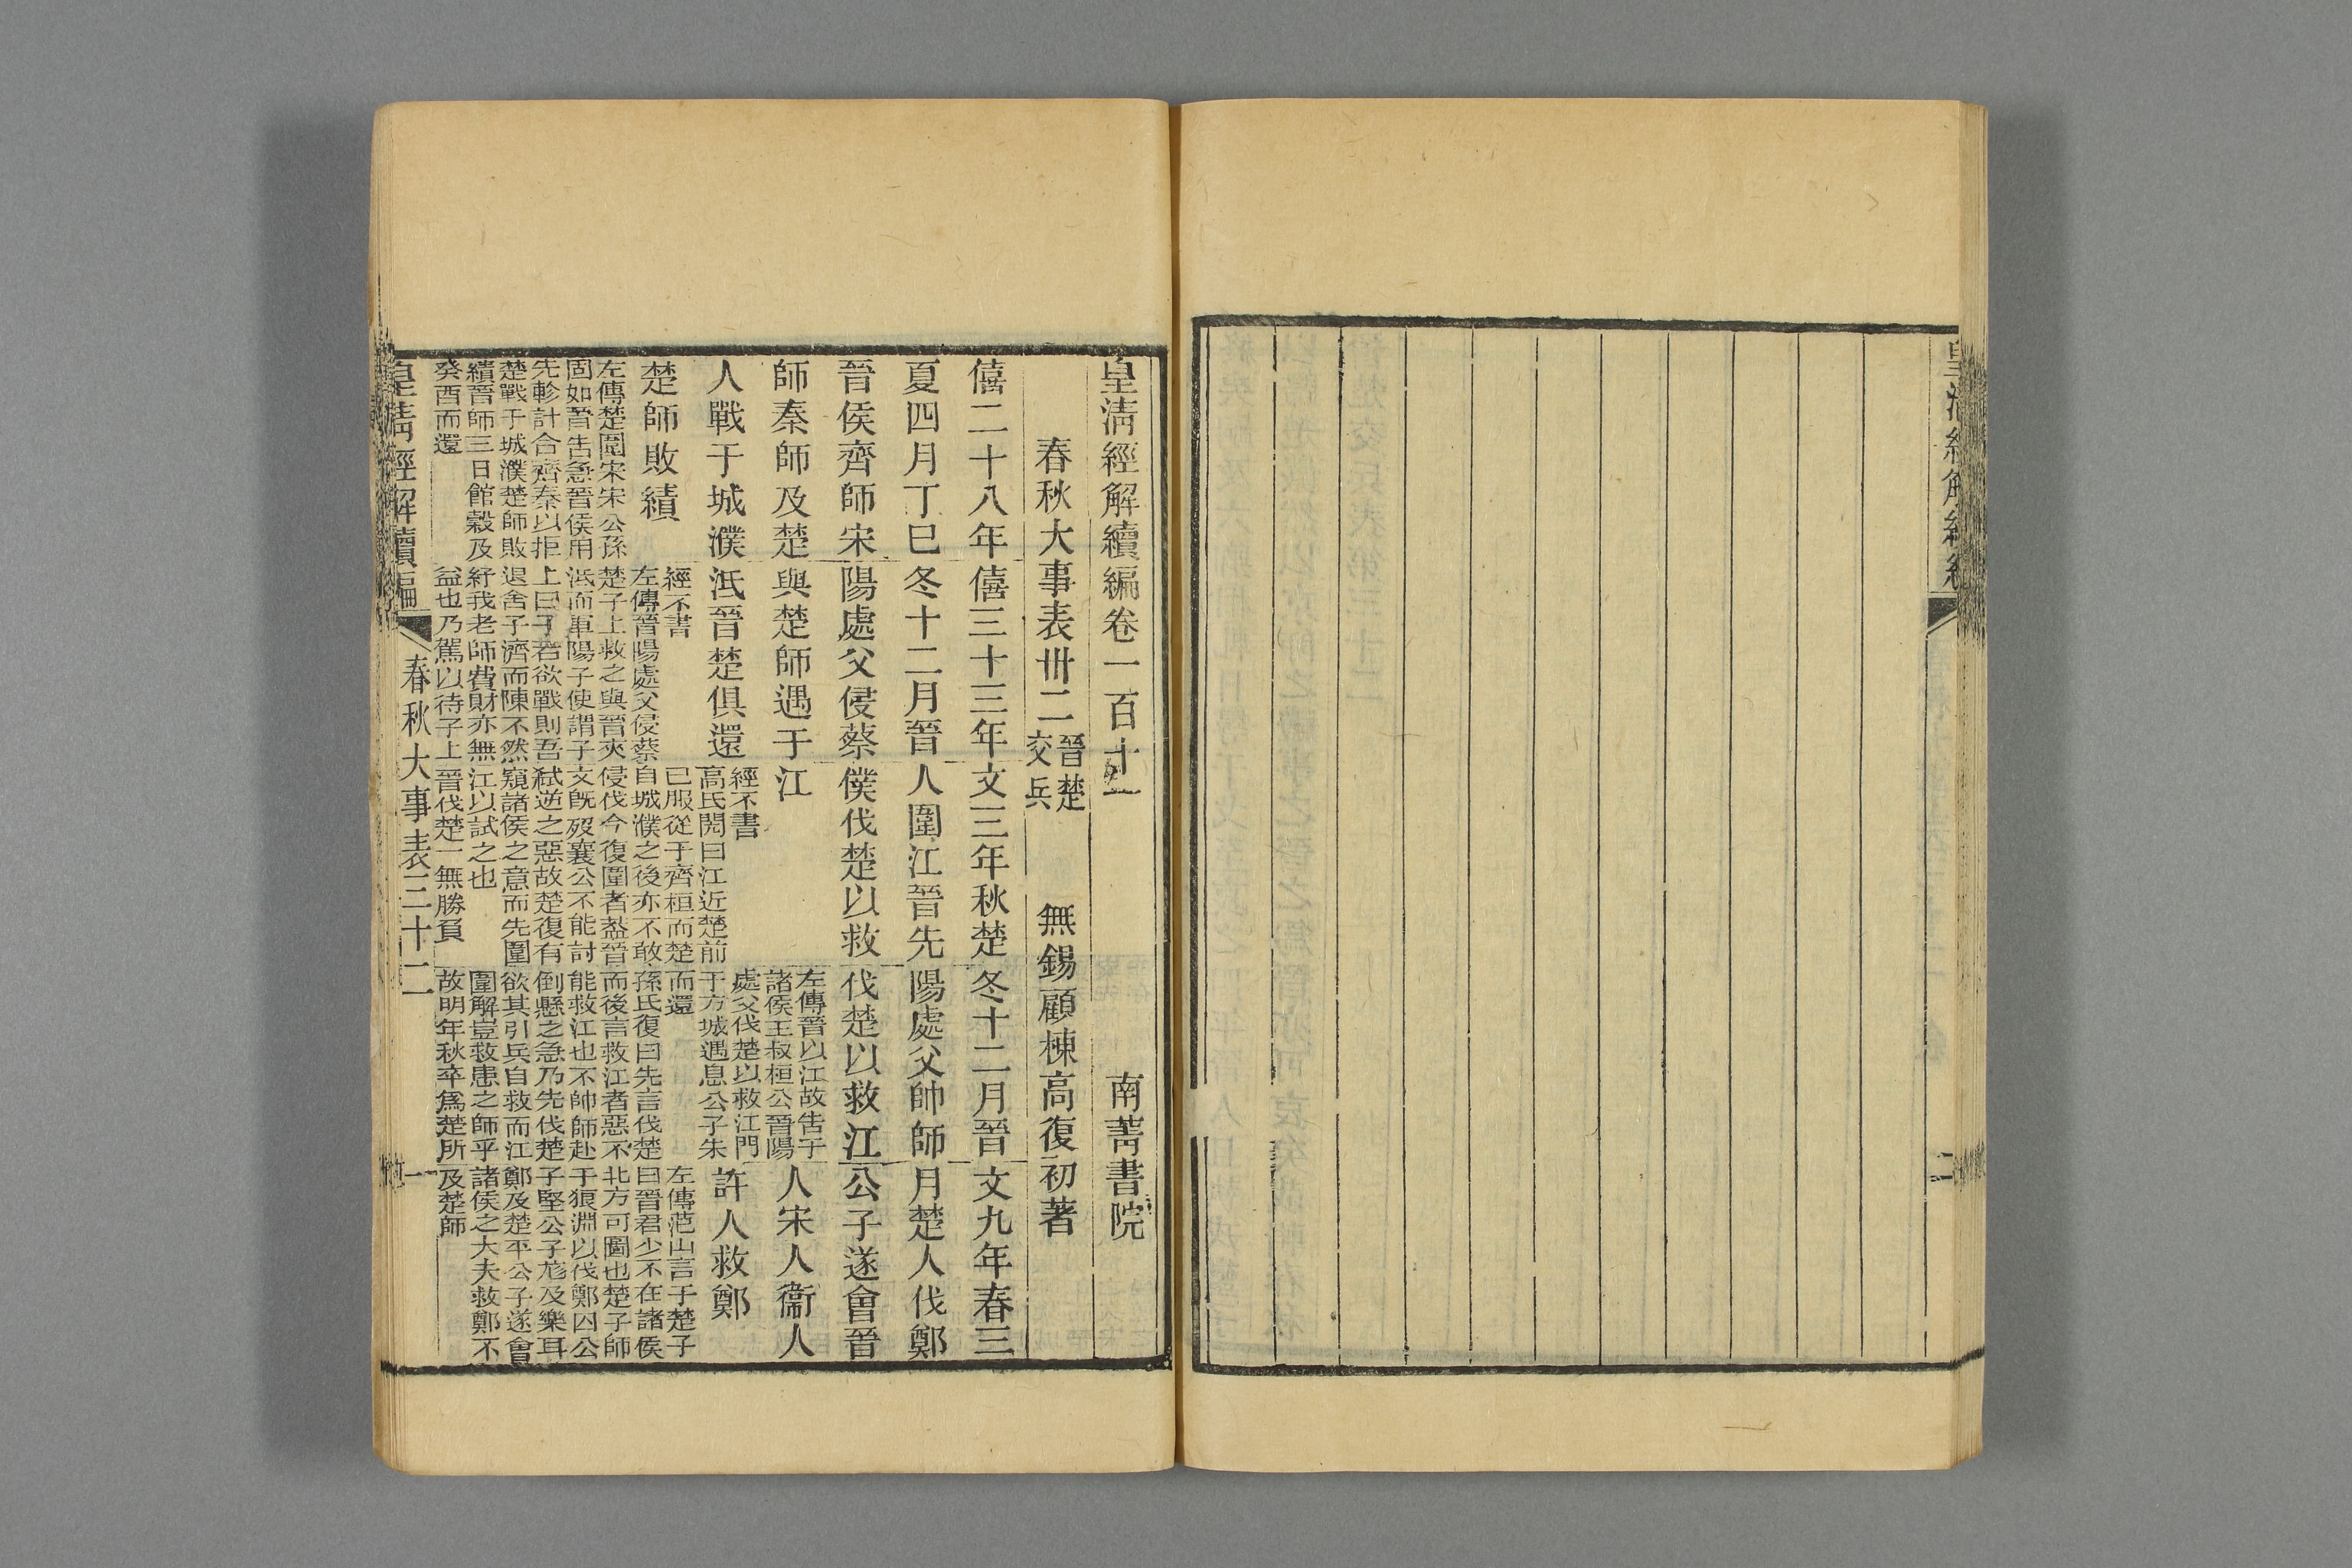 皇清經解續編
二
皇清經解續編卷一百十一
南菁書院
春秋大事表卅二
晉楚
交兵
無錫顧棟高復初著
僖二十八年
夏四月丁巳
晉侯齊師宋
師秦師及楚
人戰于城濮
楚師敗績
左傳楚圍宋宋公孫
固如晉告急晉侯用
先軫計合齊秦以拒
楚戰于城濮楚師敗
績晉師三日館穀及
癸酉而還
僖三十三年
冬十二月晉
陽處父侵蔡
與楚師遇于
泜晉楚俱還
經不書
左傳晉陽處父侵蔡
楚子上救之與晉夾
泜而軍陽子使謂子
上曰子若欲戰則吾
退舍子濟而陳不然
紓我老師費財亦無
益也乃駕以待子上
文三年秋楚
人圍江晉先
僕伐楚以救
江
經不書
高氏閌曰江近楚前
已服從于齊桓而楚
自城濮之後亦不敢
侵伐今復圍者蓋晉
文旣歿襄公不能討
弑逆之惡故楚復有
窺諸侯之意而先圍
江以試之也
晉伐楚一無勝負
冬十二月晉
陽處父帥師
伐楚以救江
左傳晉以江故告于
諸侯王叔桓公晉陽
處父伐楚以救江門
于方城遇息公子朱
而還
孫氏復曰先言伐楚
而後言救江者惡不
能救江也不帥師赴
倒懸之急乃先伐楚
欲其引兵自救而江
圍解豈救患之師乎
故明年秋卒爲楚所
文九年春三
月楚人伐鄭
公子遂會晉
人宋人衞人
許人救鄭
左傳范山言于楚子
曰晉君少不在諸侯
北方可圖也楚子師
于狼淵以伐鄭囚公
子堅公子尨及樂耳
鄭及楚平公子遂會
諸侯之大夫救鄭不
及楚師
皇淸經解續編
春秋大事表三十二
一